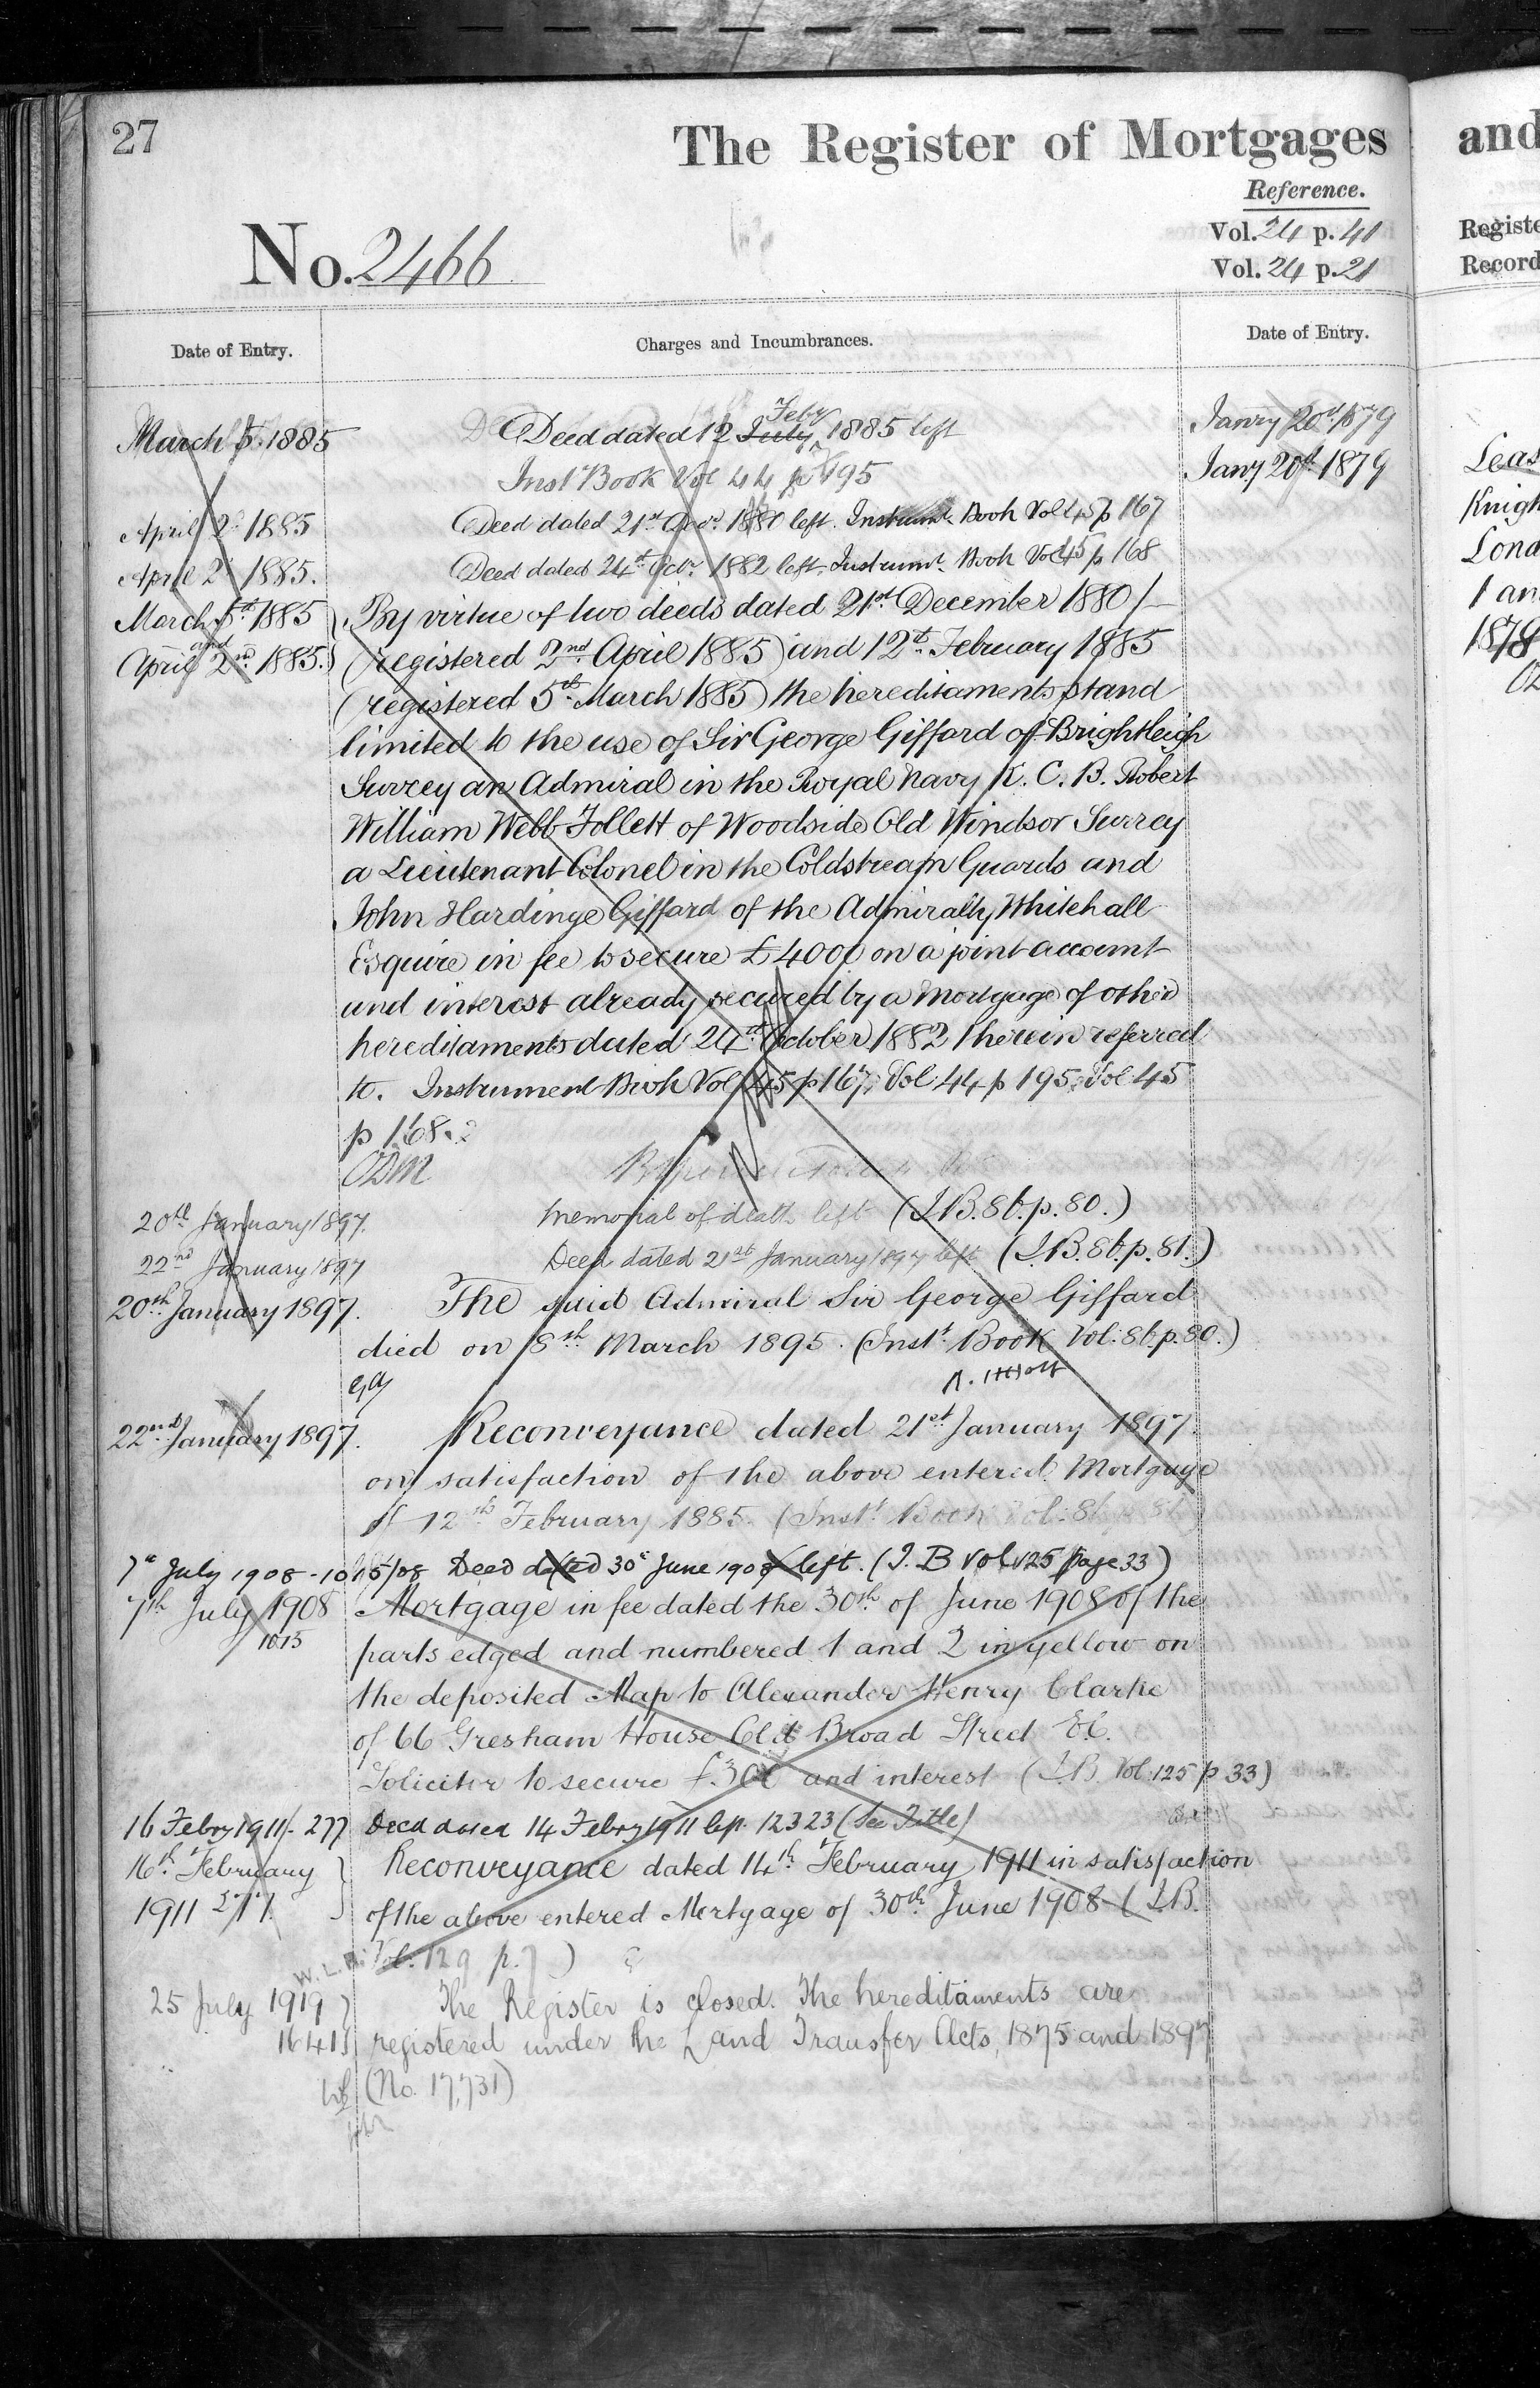 27
The Register of Mortgages
and
Reference.
Vol. 24 p. 41
Vol. 24 p. 21
Registe
Record
No. 2466
Date of Entry.
Charges and Incumbrances.
Date of Entry.
March 5. 1885
Deed dated 12 July Feby 1885 left
Janry 20th 1879
Inst Book Vol 44 p 195
Jany 20th 1879
April 2d 1885
Deed dated 21st 1880 left. Instrumt. Book Vol 45 p 167
April 2d 1885.
Deed dated 24th Octr. 1882 left. Instrumt. Book Vol 45 p 168
March 5th 1885
By virtue of two deeds dated 21st December 1880
and
April 2nd 1885.
(registered 2nd April 1885) and 12th February 1885
(registered 5th March 1885) the hereditaments stand
limited to the use of Sir George Giffard of Brightleigh
Surrey an Admiral in the Royal Navy K. C. B. Robert
William Webb Follett of Woodside Old Windsor Surrey
a Lieutenant Colonel in the Coldstream Guards and
John Hardinge Giffard of the Admiralty Whitehall
Esquire in fee to secure £4000 on a joint account
and interest already secured by a Mortgage of other
hereditaments dated 24th October 1882 therein referred
to. Instrument Book Vol 45 p 167, Vol: 44 p 195, Vol: 45
p 168.
20th January 1897.
Memorial of death left (I.B. 86. p. 80.)
22nd January 1897
Deed dated 21st January 1897 left (I.B. 86. p. 81.)
20th January 1897.
The said Admiral Sir George Giffard
died on 8th March 1895. (Instt. Book Vol: 86 p. 80.)
22nd January 1897.
Reconveyance dated 21st January 1897.
on satisfaction of the above entered Mortgage
of 12th February 1885. (Instt. Book Vol: 86 p 81)
7th July 1908 - 1015/08 Deed dated 30th June 1908 left. (I.B Vol 125 page 33)
7th July 1908
1015
Mortgage in fee dated the 30th of June 1908 of the
parts edged and numbered 1 and 2 in yellow on
the deposited Map to Alexander Henry Clarke
of 66 Gresham House Old Broad Street E.C.
Solicitor to secure £300 and interest (I.B. Vol: 125 p 33)
16 Febry 1911/- 277
Deed dated 14 Febry 1911 12323 (See Title)
16th February
Reconveyance dated 14th February 1911 in satisfaction
1911 277.
of the above entered Mortgage of 30th June 1908 (I.B.
Vol: 129 p. 7)
25 July 1919
The Register is closed. The hereditaments are
1641
registered under the Land Transfer Acts, 1875 and 1897
(No. 17,731)
Leas
Knigh
Lond
1 an
1878